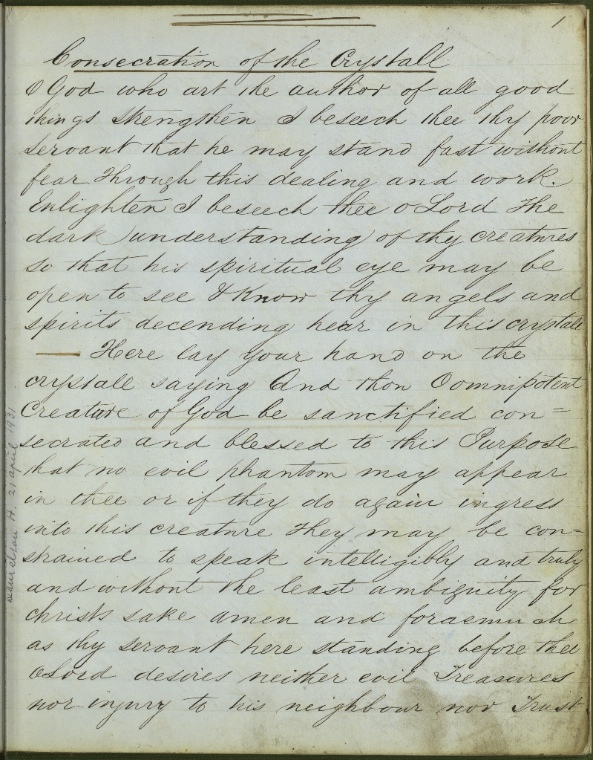 1
Consecration of the Crystall
O God who art the author of all good
things Strengthen I beseech thee thy poor
Servant that he may stand fast without
fear through this dealing and work.
Enlighten I beseech thee o Lord the
dark understanding of thy creatures
so that his spiritual eye may be
open to see & Know thy angels and
spirits decending hear in this crystale
— Here lay your hand on the
crystale saying And thou O omnipotent
Creature of God be sanctified con=
secrated and blessed to this Purpose
that no evil phantom may appear
in thee or if they do again ingress
into this creature they may be con-
strained to speak intelligibly and truly
and without the least ambiguity for
christs sake amen and foraemuch
as thy servant here standing before thee
o Lord desires neither evil Treasures
nor injury to his neighbour nor Trust
21 April 1931